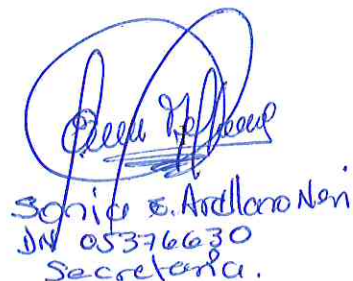 Sonia E. Arellano Neri
DN 05376630
Secretaria.